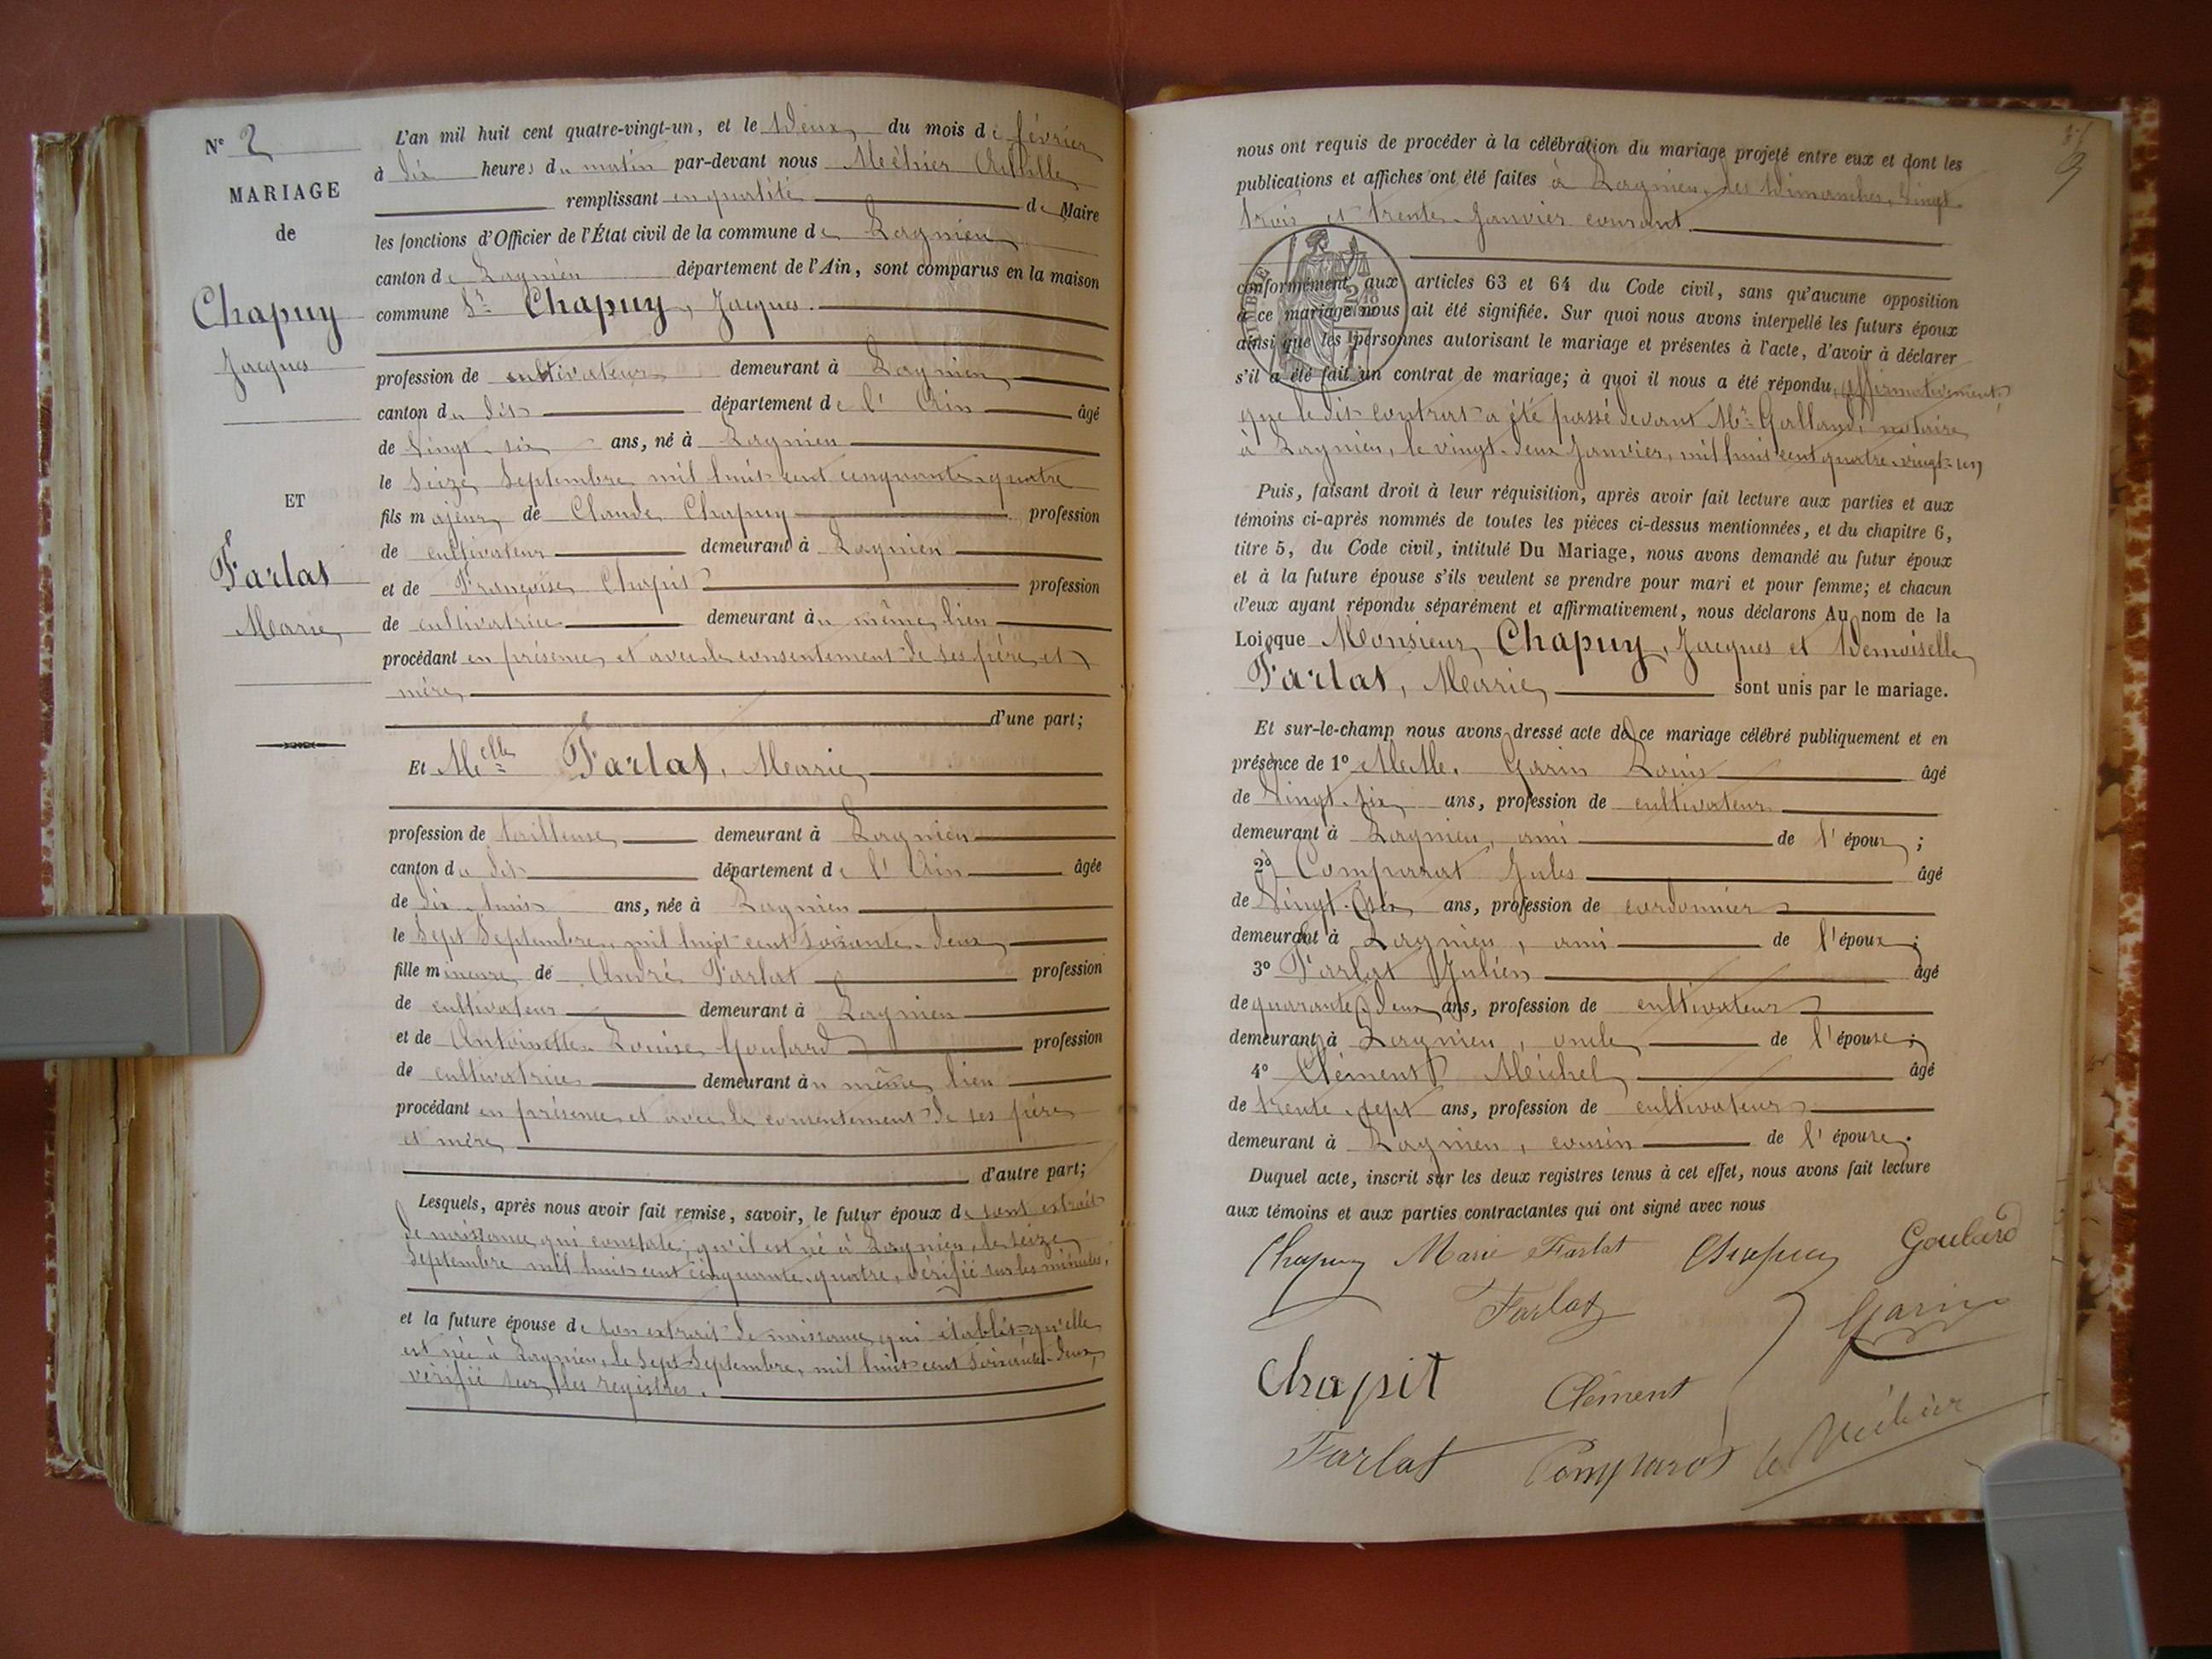 N° 2
MARIAGE
de
Chapuy
Jacques
ET
Farlat
Marie
L'an mil huit cent quatre-vingt-un, et le Deux du mois de février
à dix heures du matin par-devant nous Méhier Achille
remplissant en qualité de Maire
les fonctions d'Officier de l'État civil de la commune de Lagnieu
canton de Lagnieu département de l'Ain, sont comparus en la maison
commune Sr Chapuy, Jacques.
profession de cultivateur demeurant à Lagnieu
canton du dit département de l'Ain âgé
de vingt-six ans, né à Lagnieu
le seize Septembre mil huit cent cinquante-quatre
fils majeur de Claude Chapuy profession
de cultivateur demeurant à Lagnieu
et de Françoise Chapit profession
de cultivatrice demeurant au même lieu
procédant en présence et avec le consentement de ses père et
mère
d'une part;
Et Melle Farlat, Marie
profession de tailleuse demeurant à Lagnieu
canton du dit département de l'Ain âgée
de dix-huit ans, née à Lagnieu
le Sept Septembre, mil huit cent soixante-deux
fille mineure de André Farlat profession
de cultivateur demeurant à Lagnieu
et de Antoinette Louise Goulard profession
de cultivatrice demeurant au même lieu
procédant en présence et avec le consentement de ses père
et mère
d'autre part;
Lesquels, après nous avoir fait remise, savoir, le futur époux de sont extrait
de naissance qui constate, qu'il est né à Lagnieu, le seize
Septembre mil huit cent cinquante-quatre, vérifié sur les minutes,
et la future épouse de son extrait de naissance qui établit qu'elle
est née à Lagnieu, le Sept Septembre, mil huit cent soixante-deux,
vérifié sur les registres.
9
nous ont requis de procéder à la célébration du mariage projeté entre eux et dont les
publications et affiches ont été faites à Lagnieu, les Dimanches, vingt-
trois et trente Janvier courant
conformément aux articles 63 et 64 du Code civil, sans qu'aucune opposition
à ce mariage nous ait été signifiée. Sur quoi nous avons interpellé les futurs époux
ainsi que les personnes autorisant le mariage et présentes à l'acte, d'avoir à déclarer
s'il a été fait un contrat de mariage; à quoi il nous a été répondu, affirmativement,
que le dit contrat a été passé devant Mr Galland, notaire
à Lagnieu, le vingt-deux Janvier, mil huit cent quatre-vingt-un,
Puis, faisant droit à leur réquisition, après avoir fait lecture aux parties et aux
témoins ci-après nommés de toutes les pièces ci-dessus mentionnées, et du chapitre 6,
titre 5, du Code civil, intitulé Du Mariage, nous avons demandé au futur époux
et à la future épouse s'ils veulent se prendre pour mari et pour femme; et chacun
d'eux ayant répondu séparément et affirmativement, nous déclarons Au nom de la
Loi que Monsieur Chapuy, Jacques et Demoiselle
Farlat, Marie sont unis par le mariage.
Et sur-le-champ nous avons dressé acte de ce mariage célébré publiquement et en
présence de 1° MM. Garin Louis âgé
de vingt-six ans, profession de cultivateur
demeurant à Lagnieu, ami de l'époux;
2° Comparat Jules âgé
de Vingt-six ans, profession de cordonnier
demeurant à Lagnieu, ami de l'époux;
3° Farlat Julien âgé
de quarante-deux ans, profession de cultivateur
demeurant à Lagnieu, oncle de l'épouse;
4° Clément Michel âgé
de trente-sept ans, profession de cultivateur
demeurant à Lagnieu, cousin de l'épouse.
Duquel acte, inscrit sur les deux registres tenus à cet effet, nous avons fait lecture
aux témoins et aux parties contractantes qui ont signé avec nous
Chapuy Marie Farlat Chapuy Goulard
Farlat Garin
Chapit Clément
Farlat Comparat Méhier